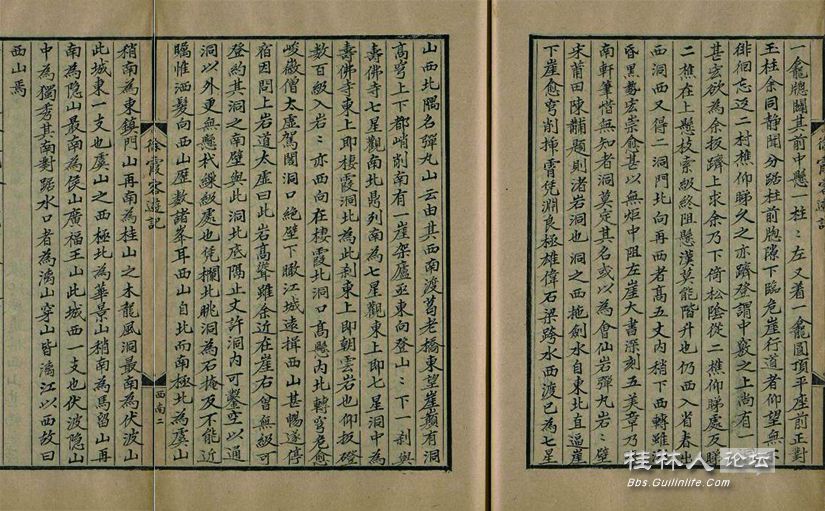 一龕牎闢其前中懸一柱〻左又着一龕圓頂平座前正對
玉柱余同靜聞分踞柱前牎隙下臨危崖行道者仰望無不
徘徊忘返二村樵仰睇久之亦躋登謂中竅之上尚有一
甚宏欲為余扳躋上求余乃下倚松陰從二樵仰睇處反睇
二樵在上懸枝索級終阻懸漢莫能階升也仍西入省春出
西洞西又得二洞門北向再西者高五丈內稍下西轉雖漸
昏黑甍宏崇愈甚以無炬中阻左崖大書深刻五美章乃
南軒筆惜無知者洞莫定其名或以為會仙岩彈丸岩〻壁
宋莆田陳黼題則渚岩洞也洞之西拖劍水自東北直逼崖
下崖愈穹削插霄凭淵良極雄偉石梁跨水西渡已為七星
徐霞客遊記
山西北隅名彈丸山云由其西南渡葛老橋東望崖巔有洞
高穹上下都峭削南有一崖架廬亟東向登山〻下一刹與
壽佛寺七星觀南北鼎列南為七星觀東上即七星洞中為
壽佛寺東上即棲霞洞北為此刹東上即朝雲岩也仰扳磴
數百級入岩〻亦西向在棲霞北洞口高懸內北轉穹危愈
峻徽僧太虛駕閣洞口絕壁下瞰江城遠挹西山甚暢遂停
宿因問上岩道太虛曰此岩高聳雖余近在崖右曾無級可
登約其洞之南壁與此洞北底隔止丈許洞內可鑿空以通
洞以外更無懸杙綴級處也凭欄北眺洞為石掩反不能近
矚惟洒髮向西山歷數諸峯耳西山自北而南極北為虞山
徐霞客遊記
西南二
稍南為東鎮門山再南為桂山之木龍風洞最南為伏波山
此城東一支也虞山之西極北為華景山稍南為馬留山再
南為隱山最南為侯山廣福王山此城西一支也伏波隱山
中為獨秀其南對踞水口者為漓山穿山皆漓江以西故曰
西山焉
桂林人论坛
Bbs.Guilinlife.Com